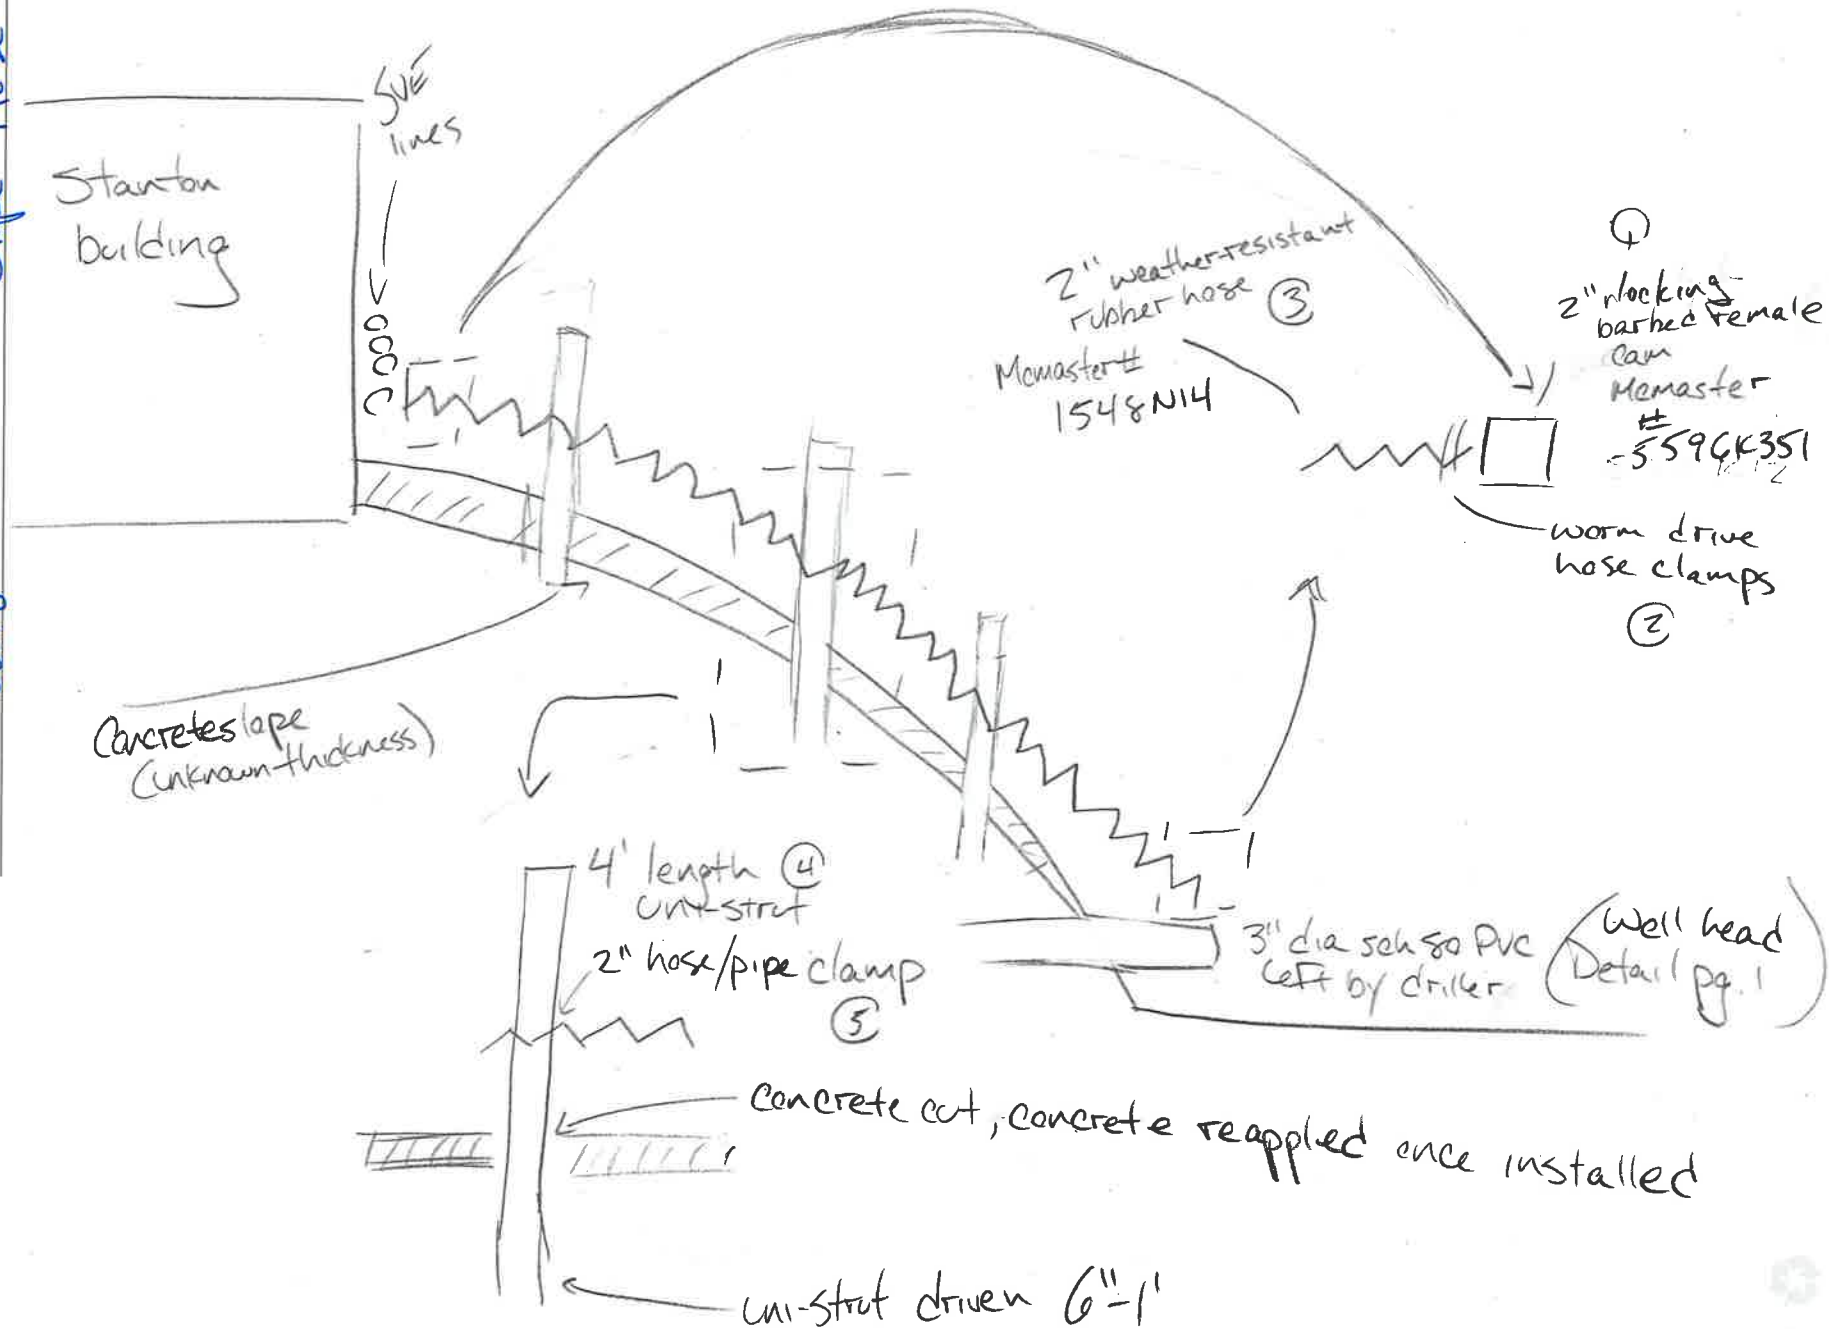 SVE
lines
Stanton
building
2" weather-resistant
rubber hose ③
Mcmaster#
1548N14
①
2" locking
barbed female
Cam
Mcmaster
#
worm drive
hose clamps
②
Concrete slope
(unknown thickness)
4' length ④
uni-strut
2" hose/pipe clamp
⑤
3" dia sch 80 PVC
left by driller
(Well head
Detail pg. 1)
Concrete cut, concrete reappled once installed
uni-strut driven 6"-1'